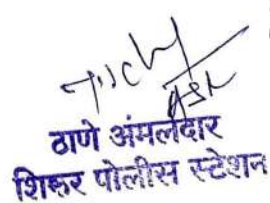 ठाणे अंमलदार
शिरूर पोलीस स्टेशन